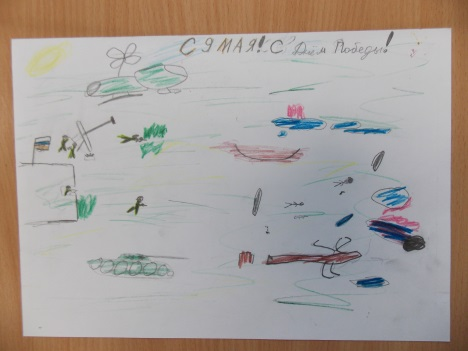 С 9 МАЯ! С Днём Победы!